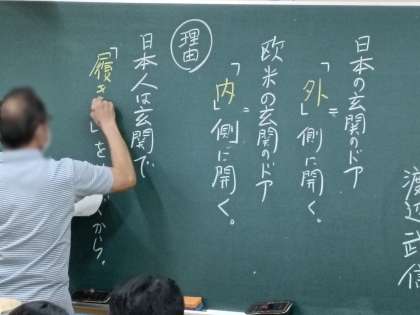 渡辺武信
日本の玄関のドア
=「外」側に開く。
欧米の玄関のドア
=「内」側に開く。
理由
日本人は玄関で
「履き
」を
から。